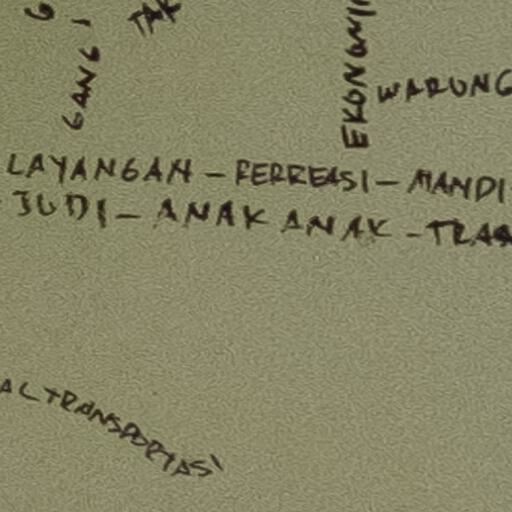 GANG 1
TAK
EKONOMI
WARUNG
LAYANGAN - REKREASI - MANDI
JUDI - ANAK ANAK - TRAN
AL TRANSPORTASI